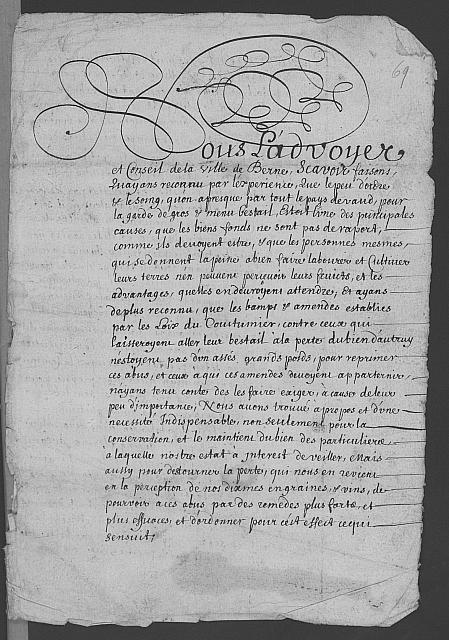 69
Nous Ladvoyer
et Conseil de la Ville de Berne, Scavoir faisons,
Quayans reconnu par l'experience, Que le peu d'ordre
& le soing, quon apresque par tout le pays de vaud, pour
la garde de gros & menu bestail, Estoit lune des principales
causes, que les biens fonds ne sont pas de raport,
comme ils devoyent estre, & que les personnes mesmes,
qui se donnent la peine abien faire labourer et Cultiver
leurs terres nen peuvent percevoir leurs fruicts, et les
advantages, quelles en devroyent attendre, Et ayans
de plus reconnu, que les bamps & amendes establies
par les Loix du Coutumier, contre ceux qui
laisseroyent aller leur bestail ala perte du bien dautruy
nestoyent pas dun assés grands poids, pour reprimer
ces abus, et ceux à qui ces amendes devoyent appartenir,
nayans tenu conte des les faire exiger, à cause de leur
peu d'importance, Nous avons trouvé apropos et dune
necessité Indispensable, non seulement pour la
conservation, et le maintien du bien des particuliers
à laquelle nostre estat a jnterest de veiller, Mais
aussy pour destourner la perte, qui nous en revient
en la perception de nos dixmes en graines, & vins, de
pourvoir aces abus par des remedes plus forts, et
plus efficaces, et d'ordonner pour cest effect ce qui
sensuit,